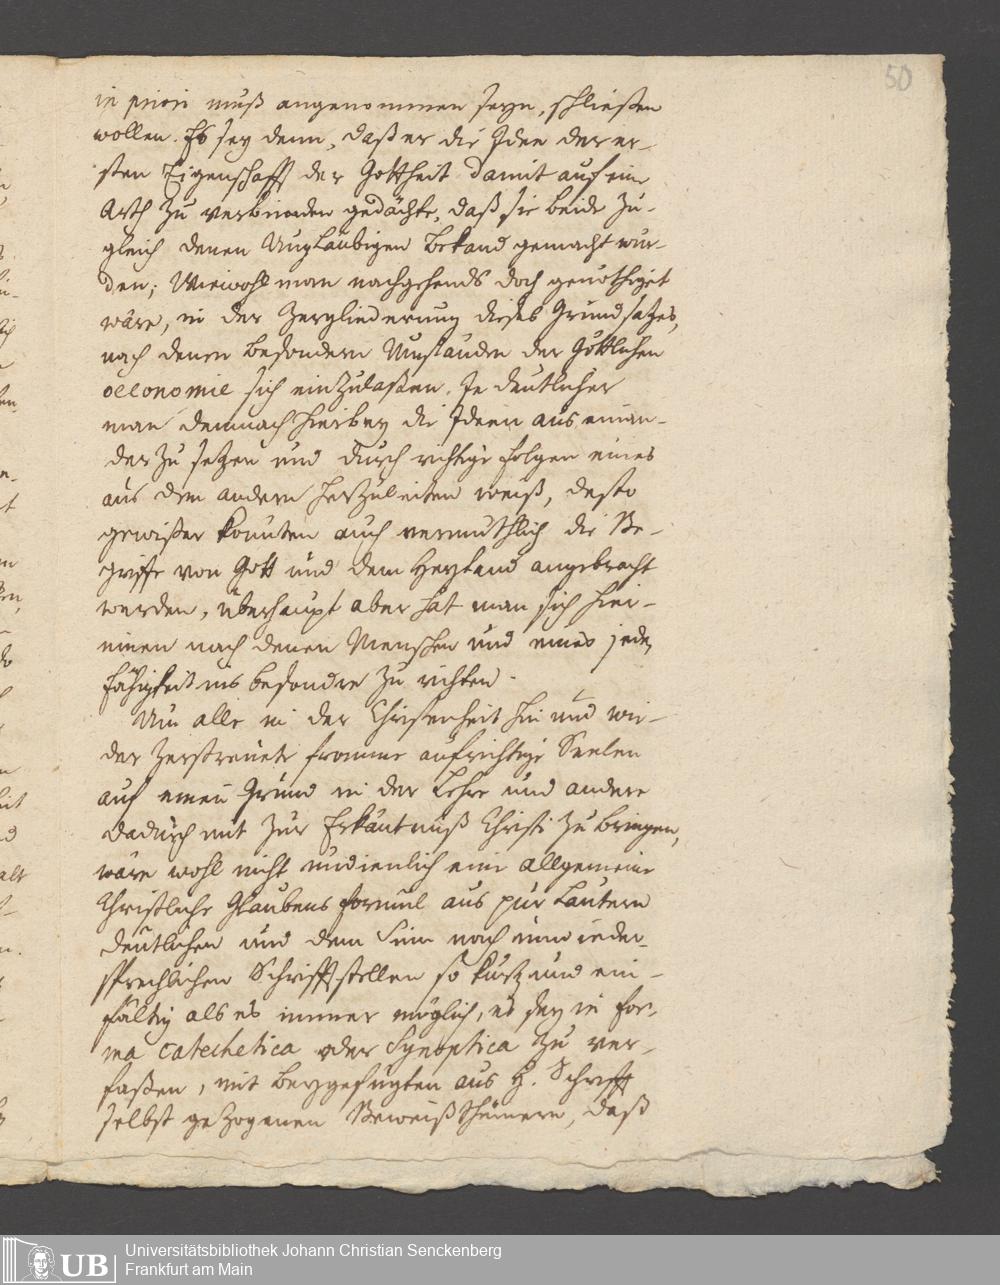 50
in priori muß angenommen seyn, schließen
wollen. Es sey denn, daß er die Idee der er-
sten Eigenschafft der Gottheit damit auf eine
Arth zu verbinden gedächte, daß sie beide zu-
gleich denen Unglaubigen bekand gemacht wur-
den; Wiewohl man nachgehends doch genöthiget
wäre, in der Zergliederung dieses Grundsatzes,
nach denen besondern Umständen der Göttlichen
oeconomie sich einzulaßen. Je deutlicher
man demnach hierbey die Ideen aus einan-
der zu setzen und durch richtige folgen eines
aus dem andern herzuleiten weiß, desto
gewißer konnten auch vermuthlich die Be-
griffe von Gott und dem Heyland angebracht
werden, überhaupt aber hat man sich hier-
innen nach denen Menschen und eines jeden
Fähigkeit ins besondre zu richten.
Um alle in der Christenheit hin und wie-
der zerstreuete fromme aufrichtige Seelen
auf einen Grund in der Lehre und andere
dadurch mit zur Erkäntniß Christi zu bringen,
wäre wohl nicht undienlich eine allgemeine
Christliche Glaubens formul aus pur lautern
deutlichen und dem Sinn nach unwieder-
sprechlichen Schrifftstellen so kurtz und ein-
fältig als es immer möglich, es sey in for-
ma catechetica oder Synoptica zu ver-
faßen, mit beygefügten aus H. Schrifft
selbst gezogenen Beweißthümern, daß
Universitätsbibliothek Johann Christian Senckenberg
Frankfurt am Main
UB